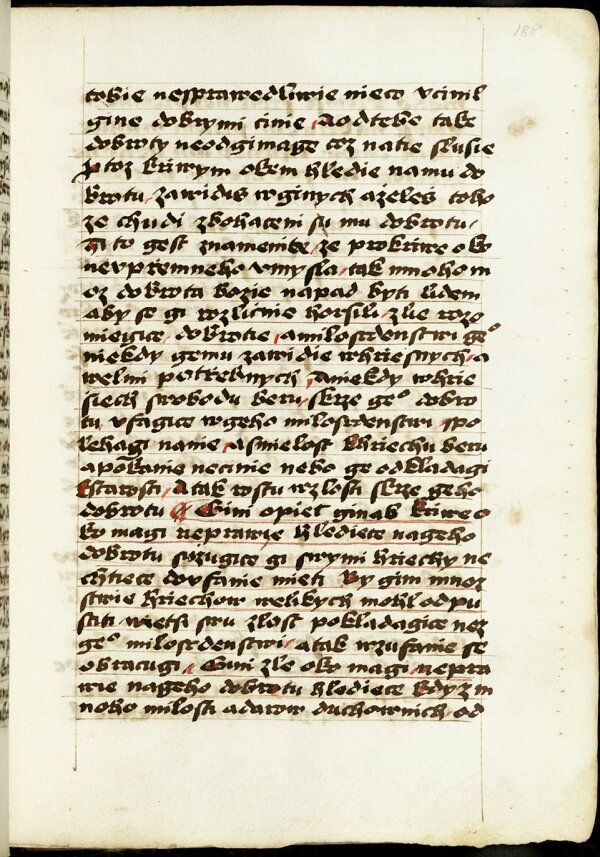 188
tobie nesprawedliwie nieco vcinil
gine dobrymi cinie, Aodtebe take
dobroty neodgimage coz natie slusie
Ptoz kriwym okem hledie namu do
brotu, zawidis wginych azeles toho
ze chudi zbohaceni su mu dobrotu,
A to gest znamenite, ze prokriwe oko
nevprzemneho vmysla, tak mnoho m
oz dobrota bozie napad byti lidem
aby se gi rozlicnie horsili, zlie rozo
miegice, dobrotie, amilosrdenstwi ge°
niekdy gemu zawidie whriesnych, a
welmi potrzebnych, Aniekdy whrie
siech swobodu beru, skrze ge° dobro
tu, vfagice wgeho milosrdenstwi, spo
lehagi nanie, asmielost khriechu beru
apokanie necinie nebo ge odkladagi
kstarosti, Atak rostu wzlosti skrze geho
dobrotu ¶ Gini opiet ginak kriwe o
ko magi neprawie hlediece nageho
dobrotu suzugice gi swymi hriechy ne
chtiece dovfanie mieti By gim mnoz
stwie hriechow welikych mohl odpu
stiti wietsi swu zlost pokladagice nez
ge° milosrdenstwi, atak wzufanie se
obracugi, Gini zle oko magi, nepra
wie nageho dobrotu hlediece kdyz m
noho milosti adarow duchownich, od